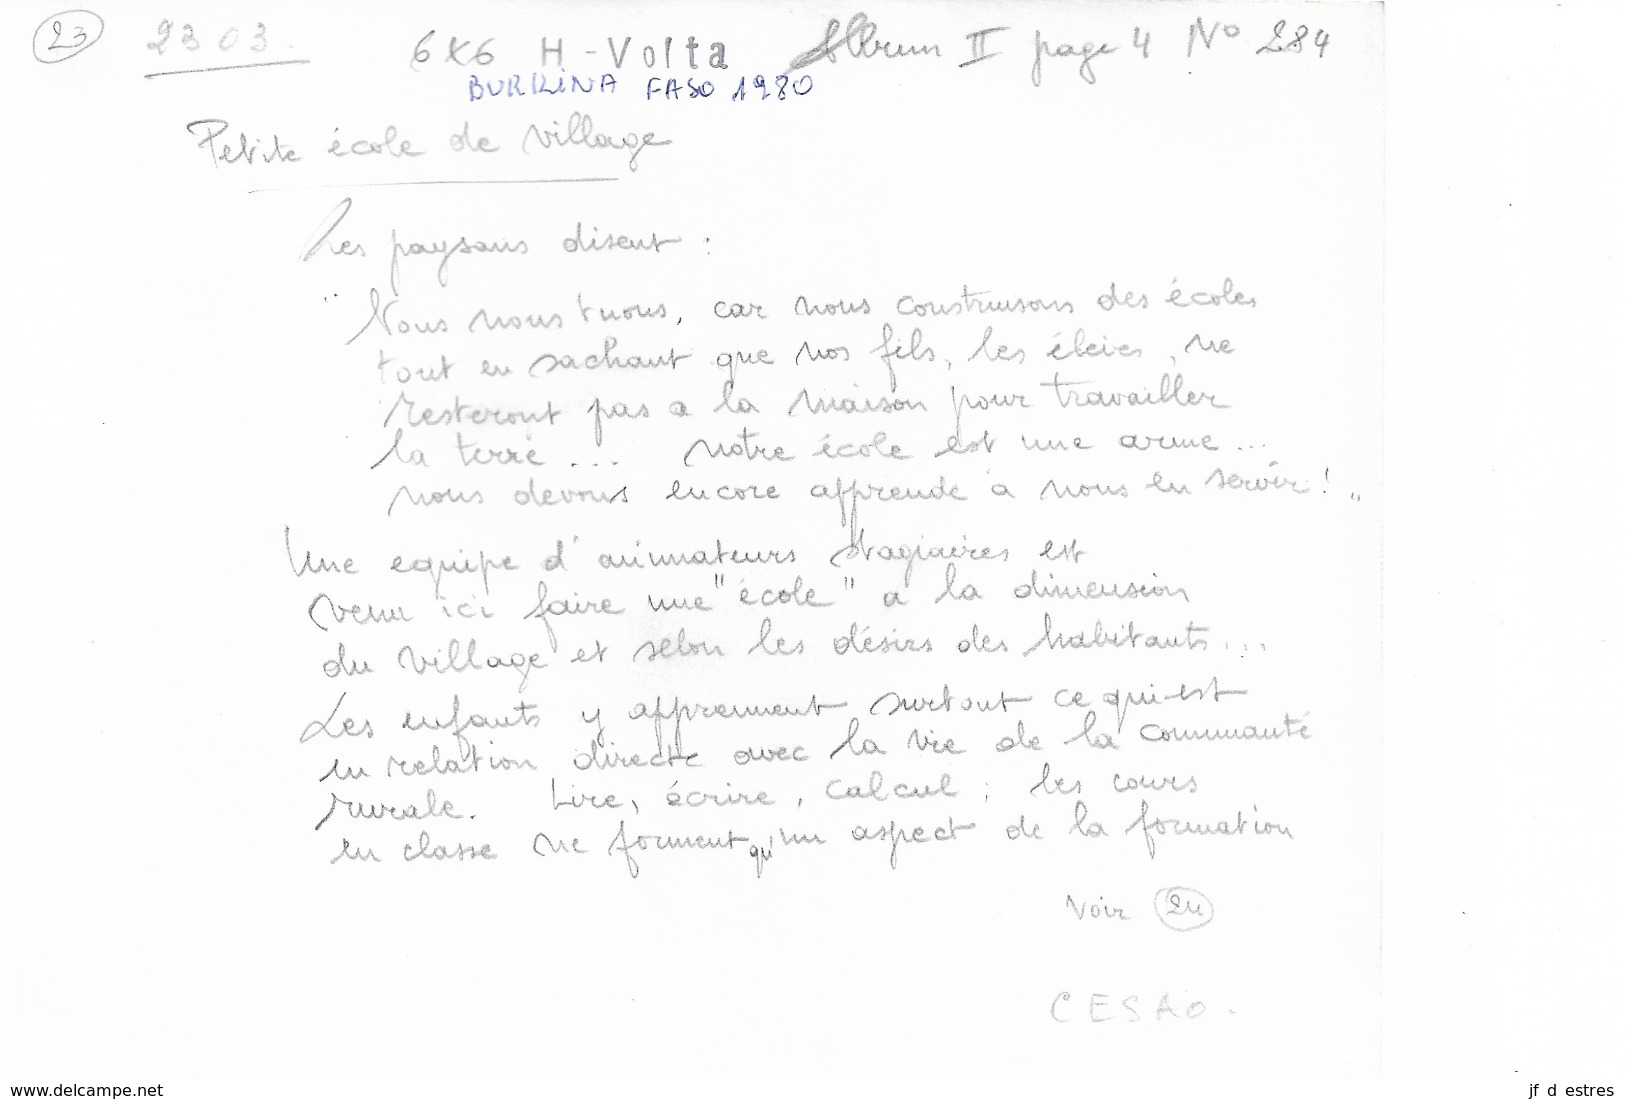 23 2303. 6x6 H-Volta Album II page 4 N° 284
BURKINA FASO 1980
Petite école de village
Les paysans disent :
"Nous nous tuons, car nous construisons des écoles
tout en sachant que nos fils, les élèves, ne
resteront pas a la maison pour travailler
la terre ... Notre école est une arme ...
nous devons encore apprende à nous en servir ! "
Une equipe d'animateurs stagiaires est
venu ici faire une "école" a la dimension
du village et selon les désirs des habitants ...
Les enfants y apprennent surtout ce qui est
en relation directe avec la vie de la communauté
rurale. Lire, écrire, calcul ; les cours
en classe ne forment qu'un aspect de la formation
Voir 24
CESAO.
www.delcampe.net
jf d estres